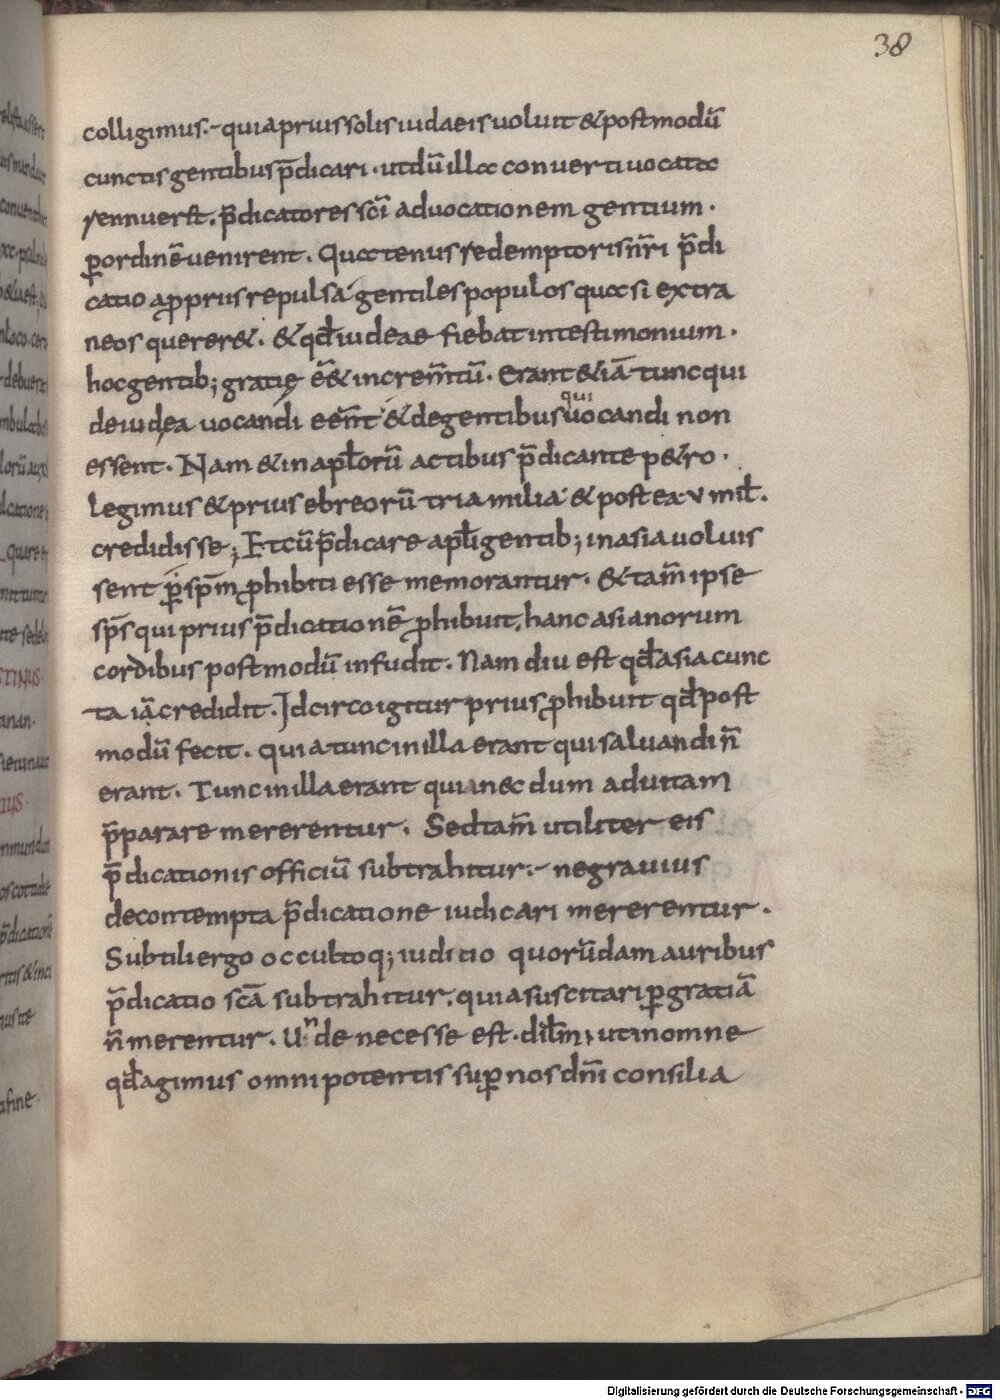 38
colligimus. quia prius solis iudaeis uoluit & postmodū
cunctis gentibus p̄dicari · ut dū illa conuerti uocata
rennuer&. p̄dicatores sc̄i ad uocationem gentium ·
ꝑ ordinē uenirent. Quatenus redemptoris nr̄i p̄di
catio a proprius repulsa gentiles populos quasi extra
neos querer&. & qd̄ iudeae fiebat in testimonium ·
hoc gentib; gratię eē& increm̄tū. Erant & iā tunc qui
de iudea uocandi een̄t & de gentibus qui uocandi non
essent. Nam & in apl̄orū actibus p̄dicante p&ro ·
legimus & prius ebreorū tria milia & postea v mil̄.
credidisse; Et cū p̄dicare apl̄i gentib; in asia uoluis
sent ꝑ sp̄m ꝓhibiti esse memorantur. & tam̄ ipse
sp̄s qui prius p̄dicationē ꝓhibuit, hanc asianorum
cordibus postmodū infudit. Nam diu est qd̄ asia cunc
ta iā credidit. Idcirco igitur prius ꝓhibuit qd̄ post
modū fecit. quia tunc in illa erant qui saluandi n̄
erant. Tunc in illa erant qui nec dum ad uitam
p̄parare mererentur. Sed tam̄ utiliter eis
p̄dicationis officiū subtrahitur. ne grauius
de contempta p̄dicatione iudicari mererentur.
Subtili ergo occultoq; iuditio quorūdam auribus
p̄dicatio scā subtrahitur. quia suscitari ꝑ gratiā
n̄ merentur. Unde necesse est. dil̄mi, ut in omne
qd̄ agimus omnipotentis suꝑ nos dn̄i consilia
Digitalisierung gefördert durch die Deutsche Forschungsgemeinschaft - DFG